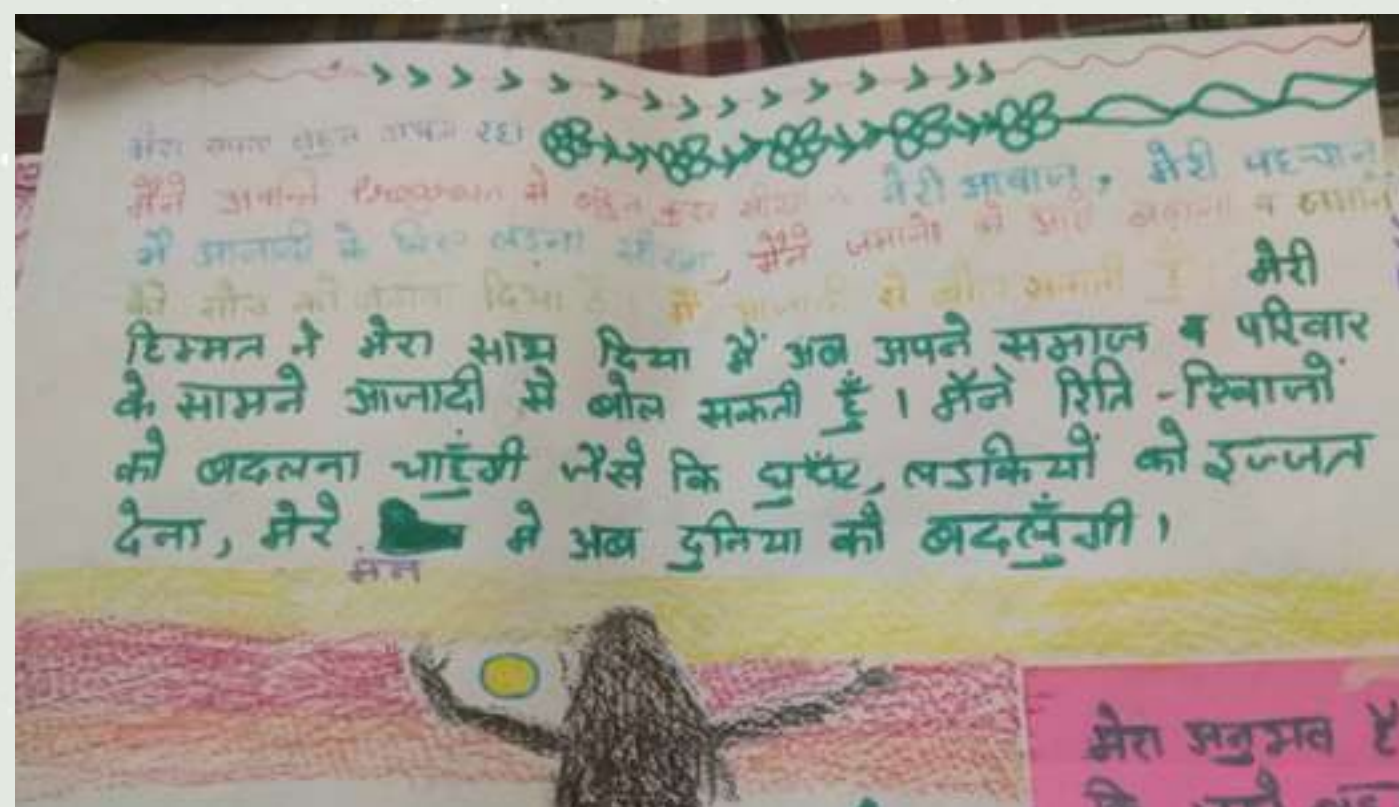 मेरा बहुत रहा
मैंने अपने Program से बहुत कुछ सीखा मेरी आवाज, मेरी पहचान
मैं आजादी के लिए लडना सीखा, मैंने जमाने को आगे व
को दिया है। मैं आजादी से बोल सकती हूँ। मेरी
हिम्मत ने मेरा साथ दिया मैं अब अपने समाज व परिवार
के सामने आजादी से बोल सकती हूँ। मैंने रिति-रिवाजों
को बदलना चाहुँगी जैसे कि घुघँट, लडकियों को इज्जत
देना, मेरे मन मे अब दुनिया को बदलुँगी।
मेरा अनुभव है
कि